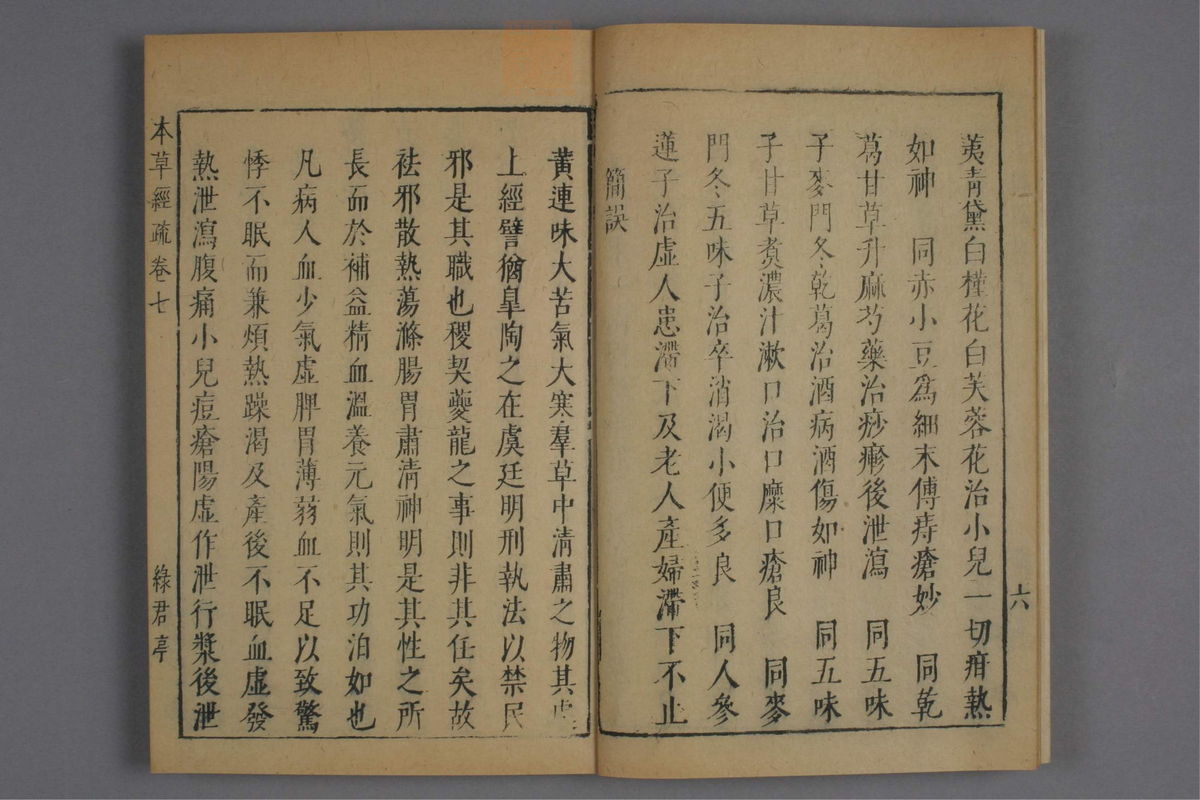 六
荑青黛白槿花白芙蓉花治小兒一切疳熱
如神　同赤小豆爲細末傅痔瘡妙　同乾
葛甘草升麻芍藥治痧瘮後泄瀉　同五味
子麥門冬乾葛治酒病酒傷如神　同五味
子甘草煑濃汁漱口治口糜口瘡良　同麥
門冬五味子治卒消渴小便多良　同人參
蓮子治虛人患滯下及老人產婦滯下不止
簡誤
黄連味大苦氣大寒羣草中清肅之物其
上經譬猶臯陶之在虞廷明刑執法以禁民
邪是其職也稷契夔龍之事則非其任矣故
祛邪散熱蕩滌腸胃肅清神明是其性之所
長而於補益精血溫養元氣則其功泊如也
凡病人血少氣虛脾胃薄弱血不足以致驚
悸不眠而兼煩熱躁渴及產後不眠血虛發
熱泄瀉腹痛小兒痘瘡陽虛作泄行漿後泄
本草經疏卷七
綠君亭